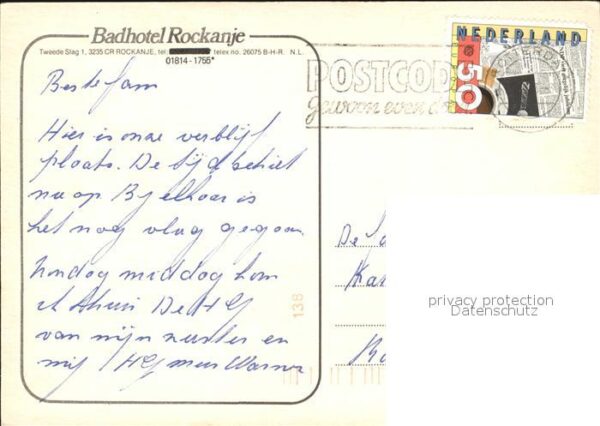 Badhotel Rockanje
Tweede Slag 1, 3235 CR ROCKANJE, tel: telex no. 26075 B-H-R. N.L.
01814-1755*
NEDERLAND
50
POSTCODE
gewoon even
Beste fam
Hier is onze verblijf
plaats. De tijd schiet
nu op Bij elkaar is
het nog vlug gegaan
Zondag middag kom
ik thuis De
van mijn zuster en
mij
De
Kar
138
privacy protection
Datenschutz